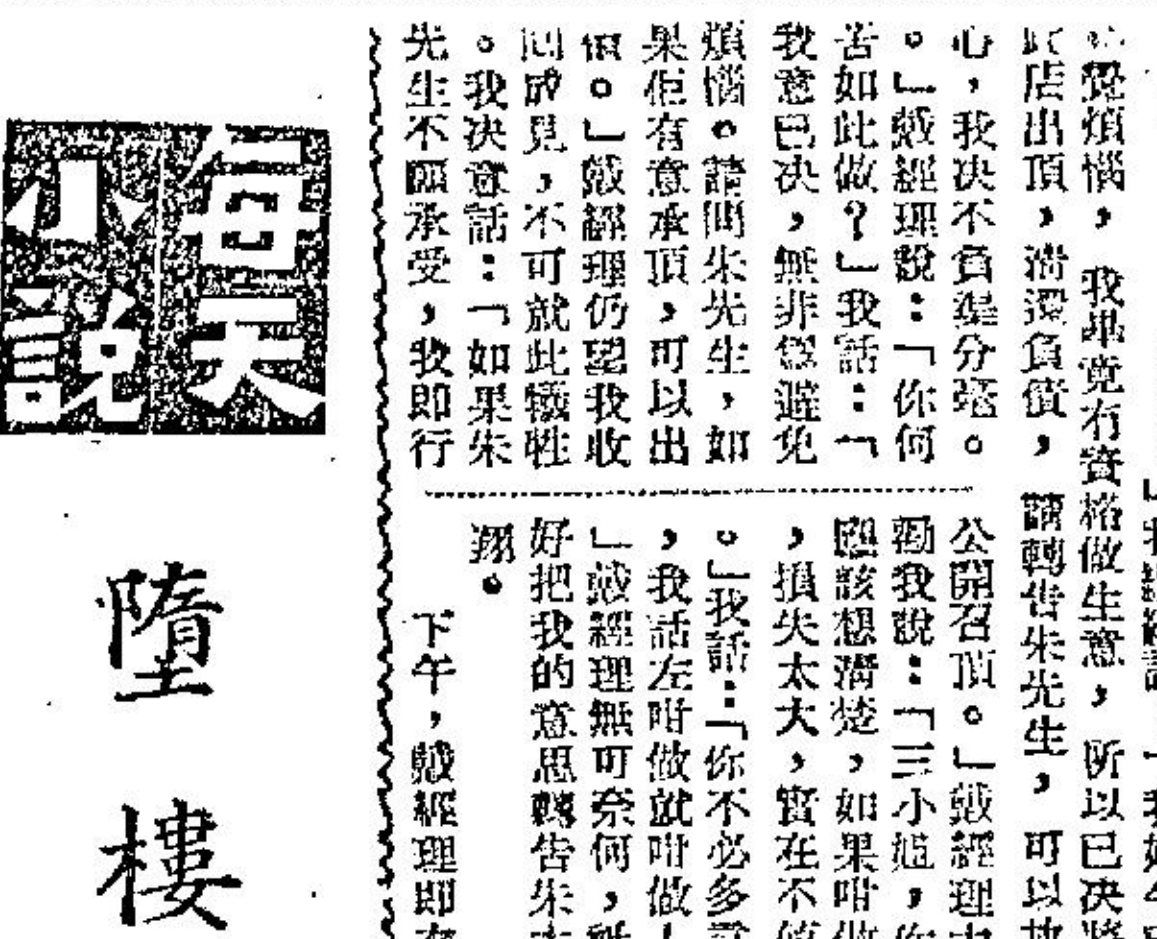 我
覺煩惱，我畢竟有資格做生意，所以已决將
店出頂，清還負債，請轉告朱先生，可以
心，我决不負渠分毫。
。」戴經理說：「你何
苦如此做？」我話：「
我意已决，無非想避免
煩惱。請問朱先生，如
果佢有意承頂，可以出
價。」戴經理仍望我收
回成見，不可就此犧牲
。我决意話：「如果朱
先生不願承受，我即行
公開召頂。」戴經理
勸我說：「三小姐，你
應該想清楚，如果咁做
，損失太大，實在不值
。」我話：「你不必多
，我話左咁做就咁做
」戴經理無可奈何，
好把我的意思轉告朱
翔。
下午，戴經理即
每天
小說
墮樓